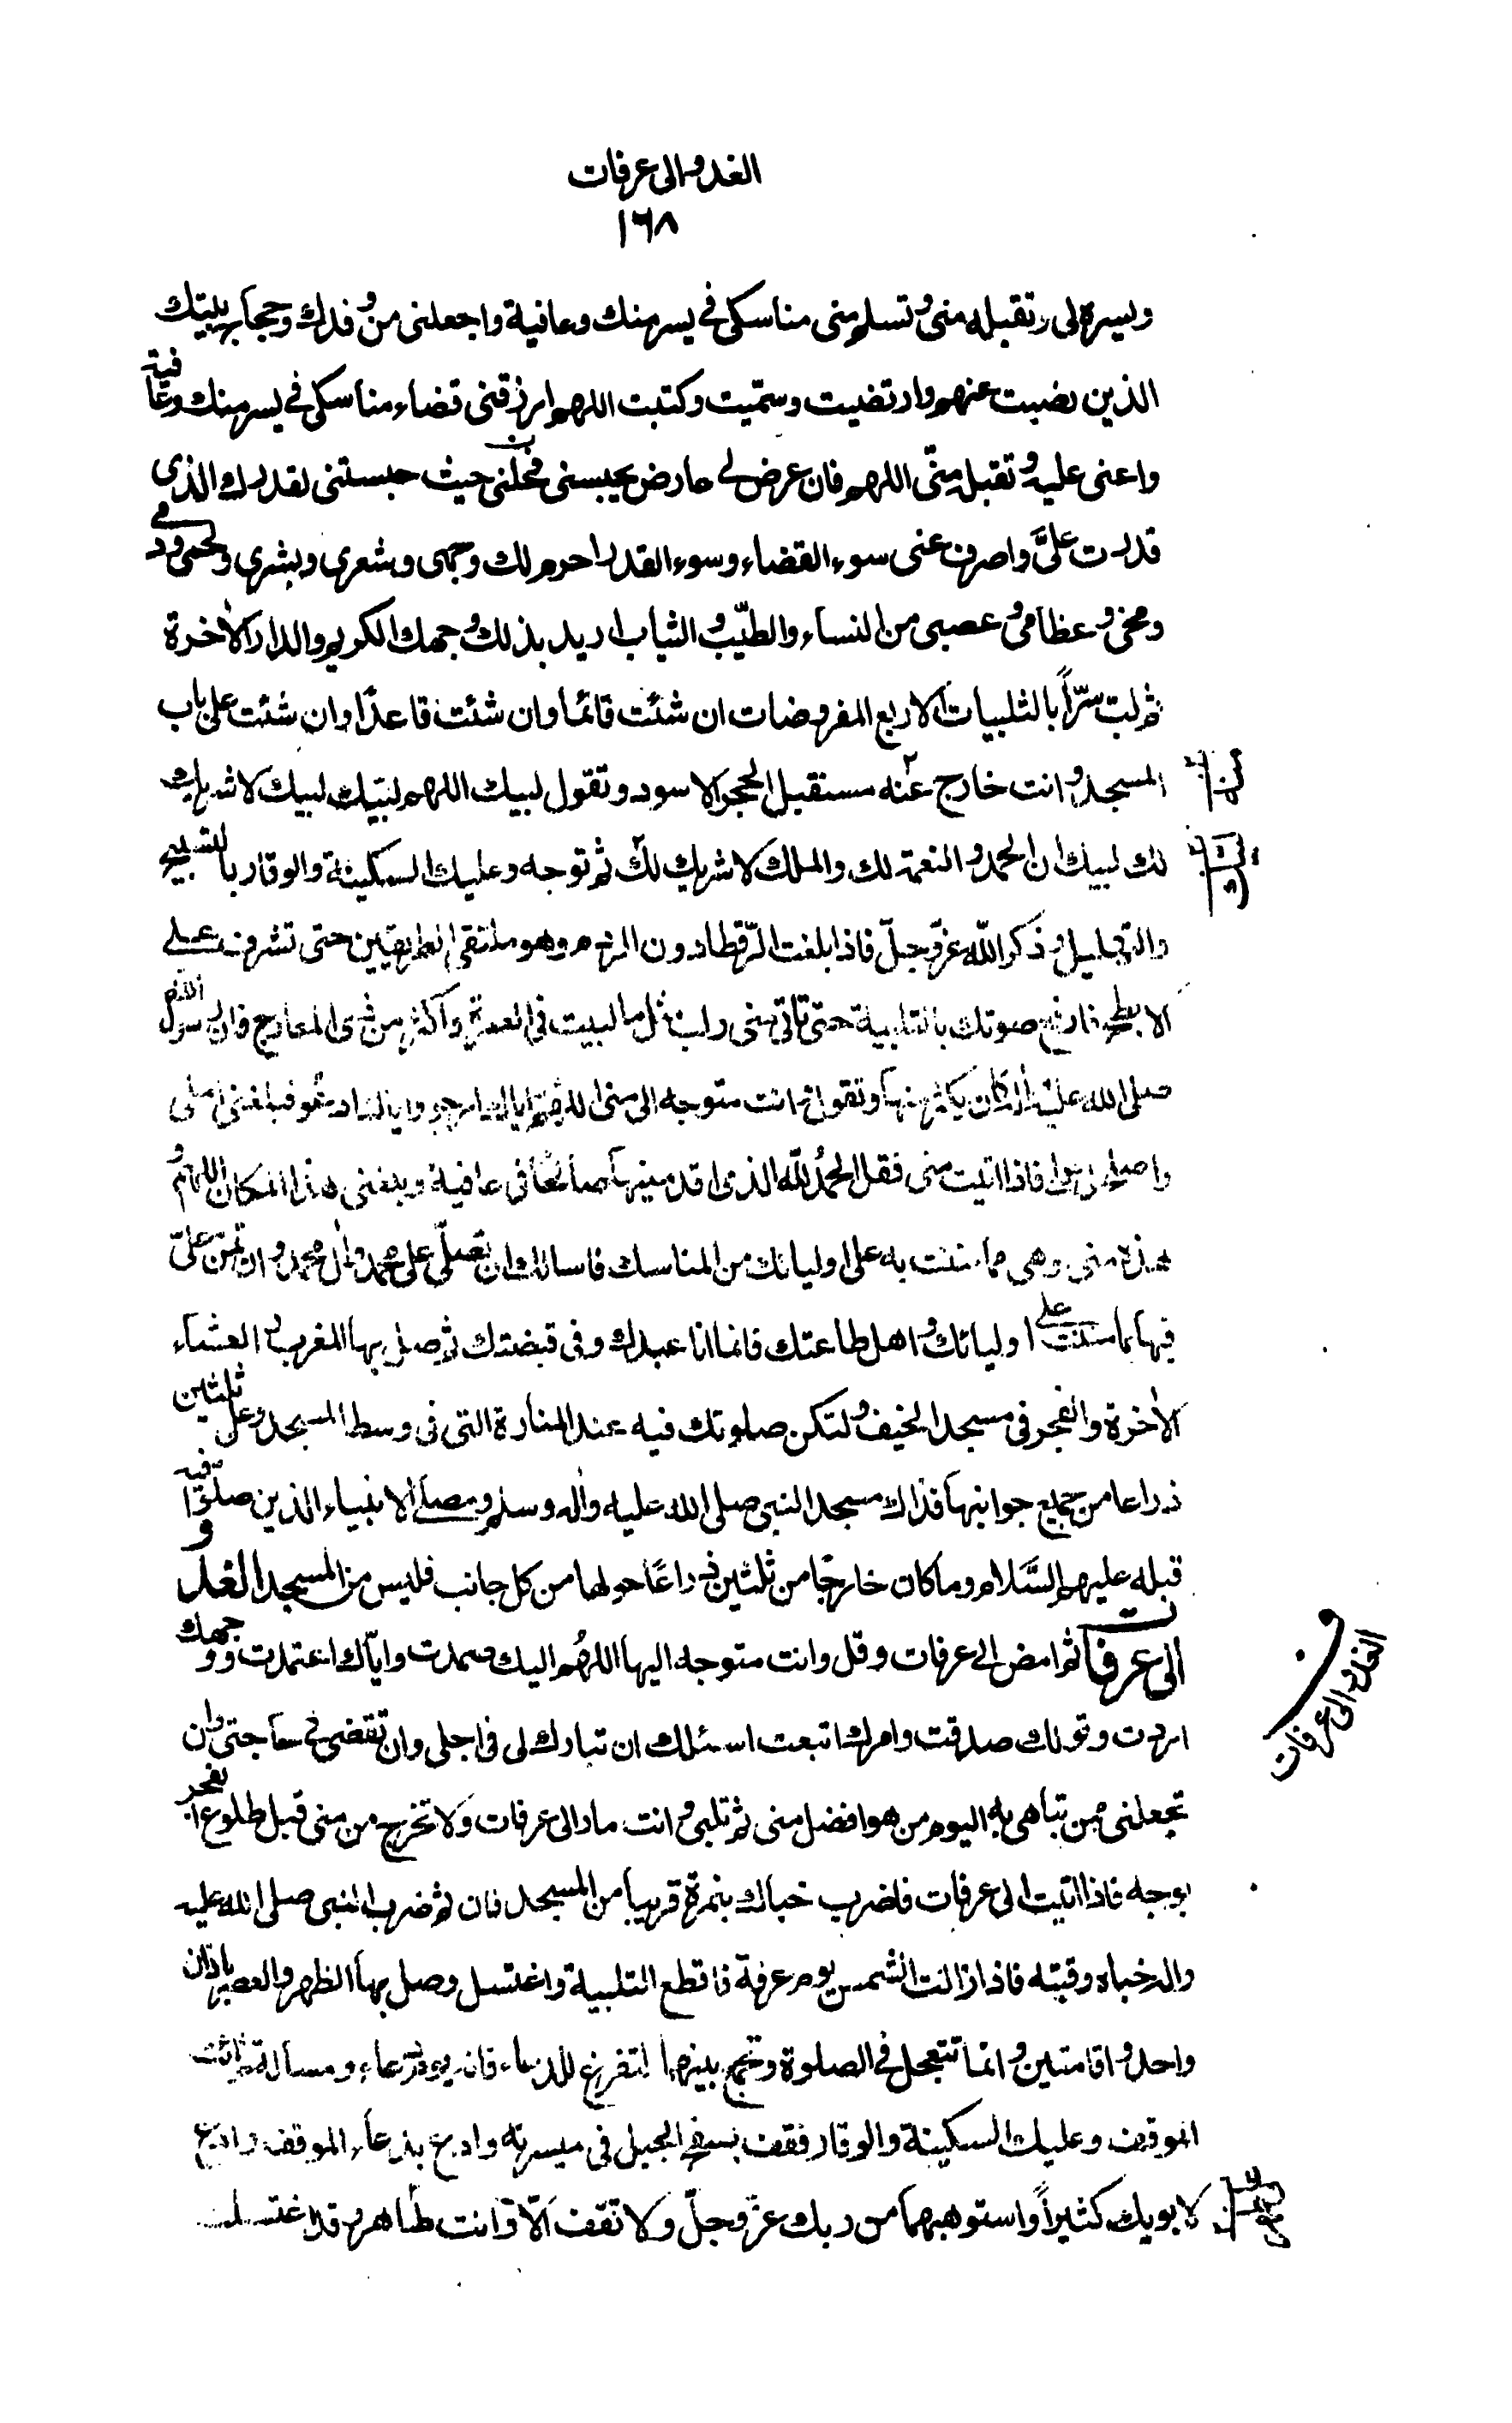 الغدو الى عرفات
١٦٨
ويسره لى وتقبله منى وتسلم منى مناسكى فى يسر منك وعافية واجعلنى من وفدك وحجاج بيتك
الذين رضيت عنهم وارتضيت وسمّيت وكتبت اللهم ارزقنى قضاء مناسكى فى يسر منك وعافية
واعنى عليه وتقبل منّى اللهم فان عرض لى عارض يحبسنى فحلنى حيث حبستنى لقدرك الذى
قدرت علىَّ واصرف عنى سوء القضاء وسوء القدر احرم لك وجهى وشعرى وبشرى ولحمى ودمى
ومخى وعظامى وعصبى من النساء والطيّب والثياب اريد بذلك وجهك الكريم والدار الاخرة
ثم لب سرّاً بالتلبيات الاربع المفروضات ان شئت قائما وان شئت قاعدًا وان شئت على باب
المسجد وانت خارج عنه مستقبل الحجر الاسود وتقول لبيك اللهم لبيك لبيك لا شريك
لك لبيك ان الحمد والنعمة لك والملك لا شريك لك ثم توجه وعليك السكينة والوقار بالتسبيح
والتهليل وذكر الله عزّ وجلّ فاذا بلغت الرّقطا دون الردم وهو ملتقى الطريقين حتى تشرف على
الابطح فارفع صوتك بالتلبية حتى تاتى منى ولب مثل ما لبيت فى العمرة واكثر من ذى المعارج فان رسول الله
صلى الله عليه واله كان يكثر منها وتقول وانت متوجه الى منى اللهم اياك ارجو واياك ادعو فبلغنى املى
واصلح لى عملى فاذا اتيت منى فقل الحمد لله الذى اقدمنيها صالحا فى عافية وبلغنى هذا المكان اللهم و
هذه منى وهى مما مننت به على اوليائك من المناسك فاسالك ان تصلّى على محمد وال محمد وان تمن علىّ
فيها بما مننت على اوليائك واهل طاعتك فانما انا عبدك وفى قبضتك ثم صل بها المغرب والعشاء
الاخرة والفجر فى مسجد الخيف ولتكن صلوتك فيه عند المنارة التى فى وسط المسجد وعلى ثلثين
ذراعا من جميع جوانبها فذاك مسجد النبى صلى الله عليه واله وسلم ومصلى الانبياء الذين صلوا فيه
قبله عليهم السَّلام وما كان خارجًا من ثلثين ذراعًا حولها من كل جانب فليس من المسجد الغدو
الى عرفات ثم امض الى عرفات وقل وانت متوجه اليها اللهُم اليك صمدت واياك اعتمدت ووجهك
اردت وقولك صدقت وامرك اتبعت اسئلك ان تبارك لى فى اجلى وان تقضى لى حاجتى وان
تجعلنى ممن تباهى به اليوم من هو افضل منى ثم تلبى وانت مار الى عرفات ولا تخرج من منى قبل طلوع الفجر
بوجه فاذا اتيت الى عرفات فاضرب خباك بنمرة قريبا من المسجد فان ثم ضرب النبى صلى الله عليه
واله خباه وقبته فاذا زالت الشمس يوم عرفة فاقطع التلبية واغتسل وصل بها الظهر والعصر باذان
واحد واقامتين وانما تتعجل فى الصلوة وتجمع بينهما لتفرغ للدعاء فانه يوم دعاء ومسالة ثم ائت
الموقف وعليك السكينة والوقار فقف بسفح الجبل فى ميسرته وادع بدعاء الموقف وادع
لابويك كثيراً واستوهبهما من ربك عزّ وجلّ ولا تقف الّا وانت طاهر وقد اغتسلت
الغدو الى عرفات